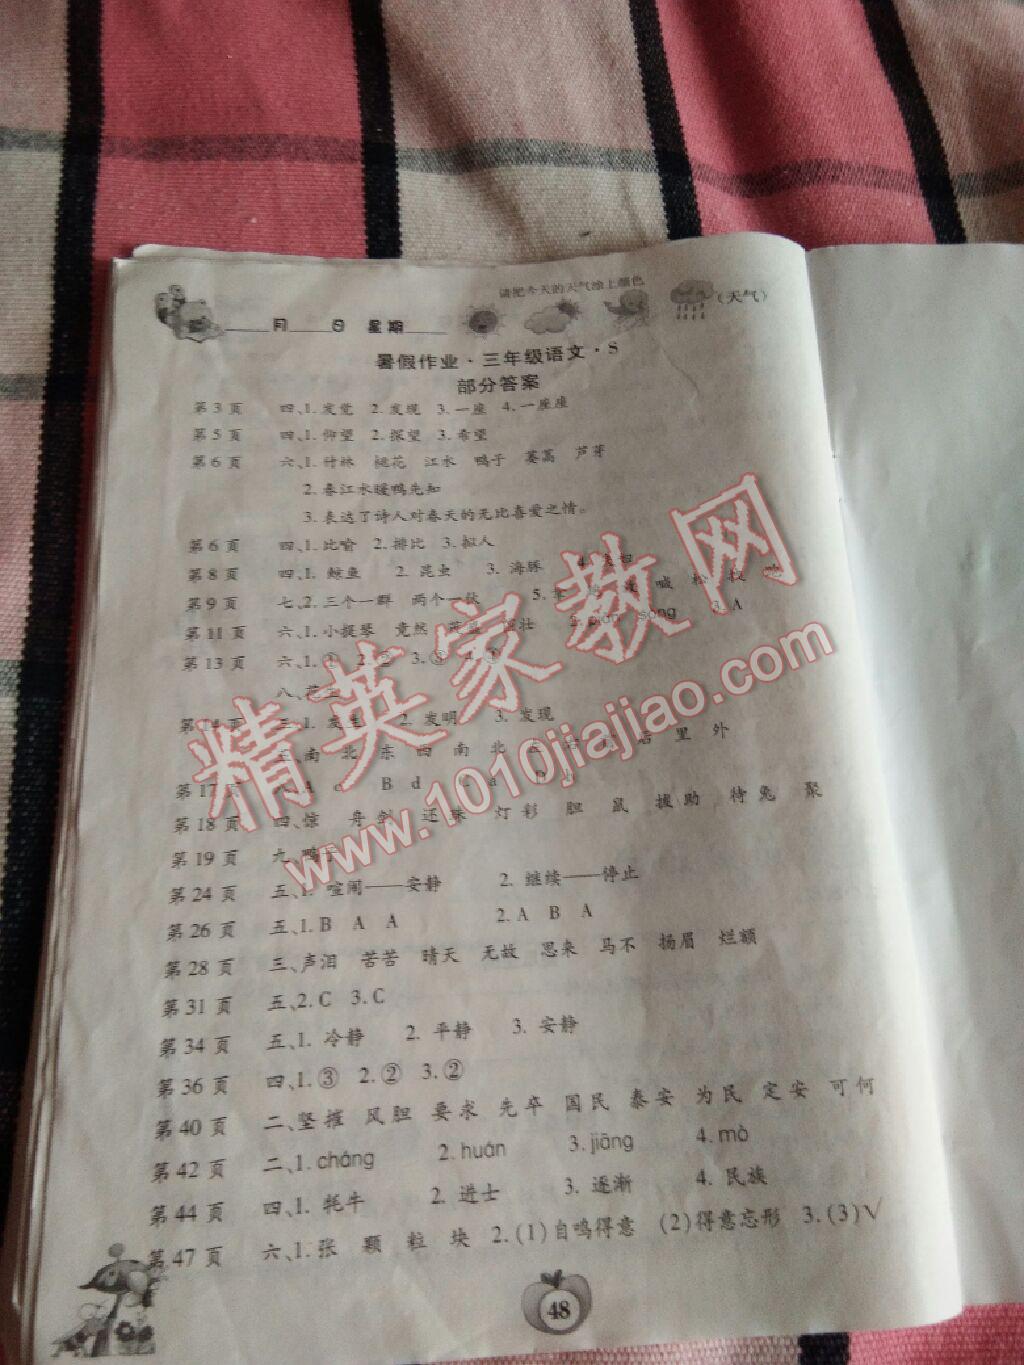 请把今天的天气涂上颜色
____月____日 星期____ (天气)
暑假作业·三年级语文·S
部分答案
第3页 四、1.发觉 2.发现 3.一座 4.一座座
第5页 四、1.仰望 2.探望 3.希望
第6页 六、1.竹林 桃花 江水 鸭子 蒌蒿 芦芽
2.春江水暖鸭先知
3.表达了诗人对春天的无比喜爱之情。
第6页 四、1.比喻 2.排比 3.拟人
第8页 四、1.鲸鱼 2.昆虫 3.海豚
第9页 七、2.三个一群 两个一伙 5. 喊 松
第11页 六、1.小提琴 竟然 壮 sòng 3.A
第13页 六、1.① 2.② 3.③
八、
第14页 三、1.发生 2.发明 3.发现
五、南 北 东 西 南 北 后 里 外
第17页 A B d
第18页 四、惊 舟 剑 还 珠 灯 彩 胆 鼠 援 助 待 兔 聚
第19页 九、鸭
第24页 五、1.喧闹——安静 2.继续——停止
第26页 五、1.B A A 2.A B A
第28页 三、声泪 苦苦 晴天 无故 思来 马不 扬眉 烂额
第31页 五、2.C 3.C
第34页 五、1.冷静 2.平静 3.安静
第36页 四、1.③ 2.② 3.②
第40页 二、坚摧 风胆 要求 先卒 国民 泰安 为民 定安 可何
第42页 二、1.cháng 2.huán 3.jiāng 4.mò
第44页 四、1.牦牛 2.进士 3.逐渐 4.民族
第47页 六、1.张 颗 粒 块 2.(1)自鸣得意 (2)得意忘形 3.(3)√
48
精英家教网
www.1010jiajiao.com